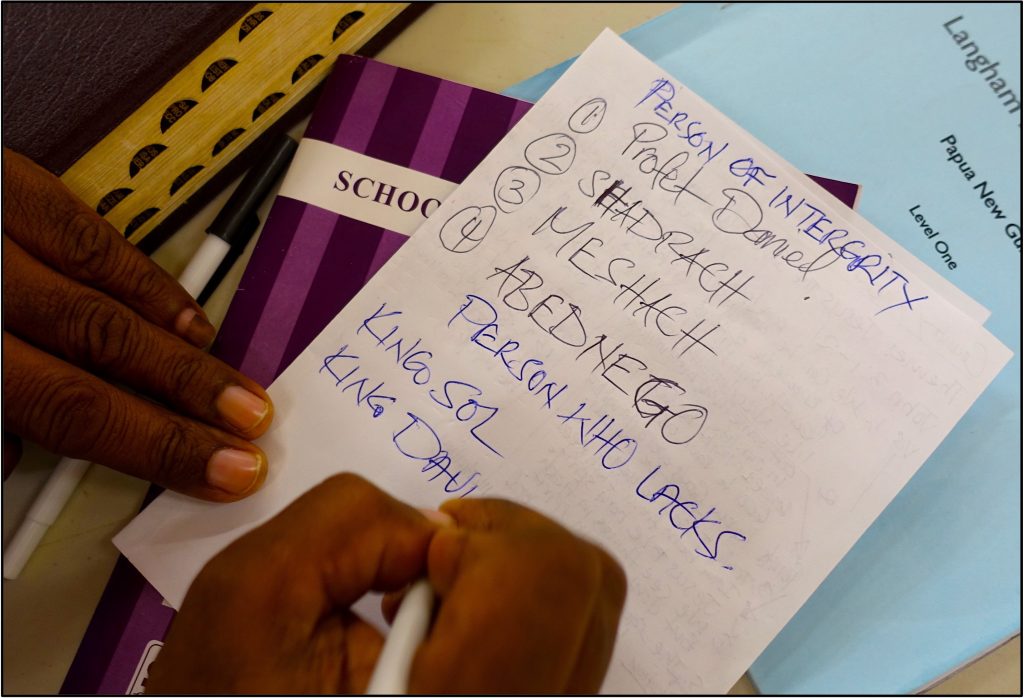 PERSON OF INTERGRITY
① Profet Daniel.
② SHADRACH
③ MESHACH
④ ABEDNEGO
PERSON WHO LACKS.
KING. SOL
KING DAVI
SCHOO
Langham
Papua New Gu
Level One